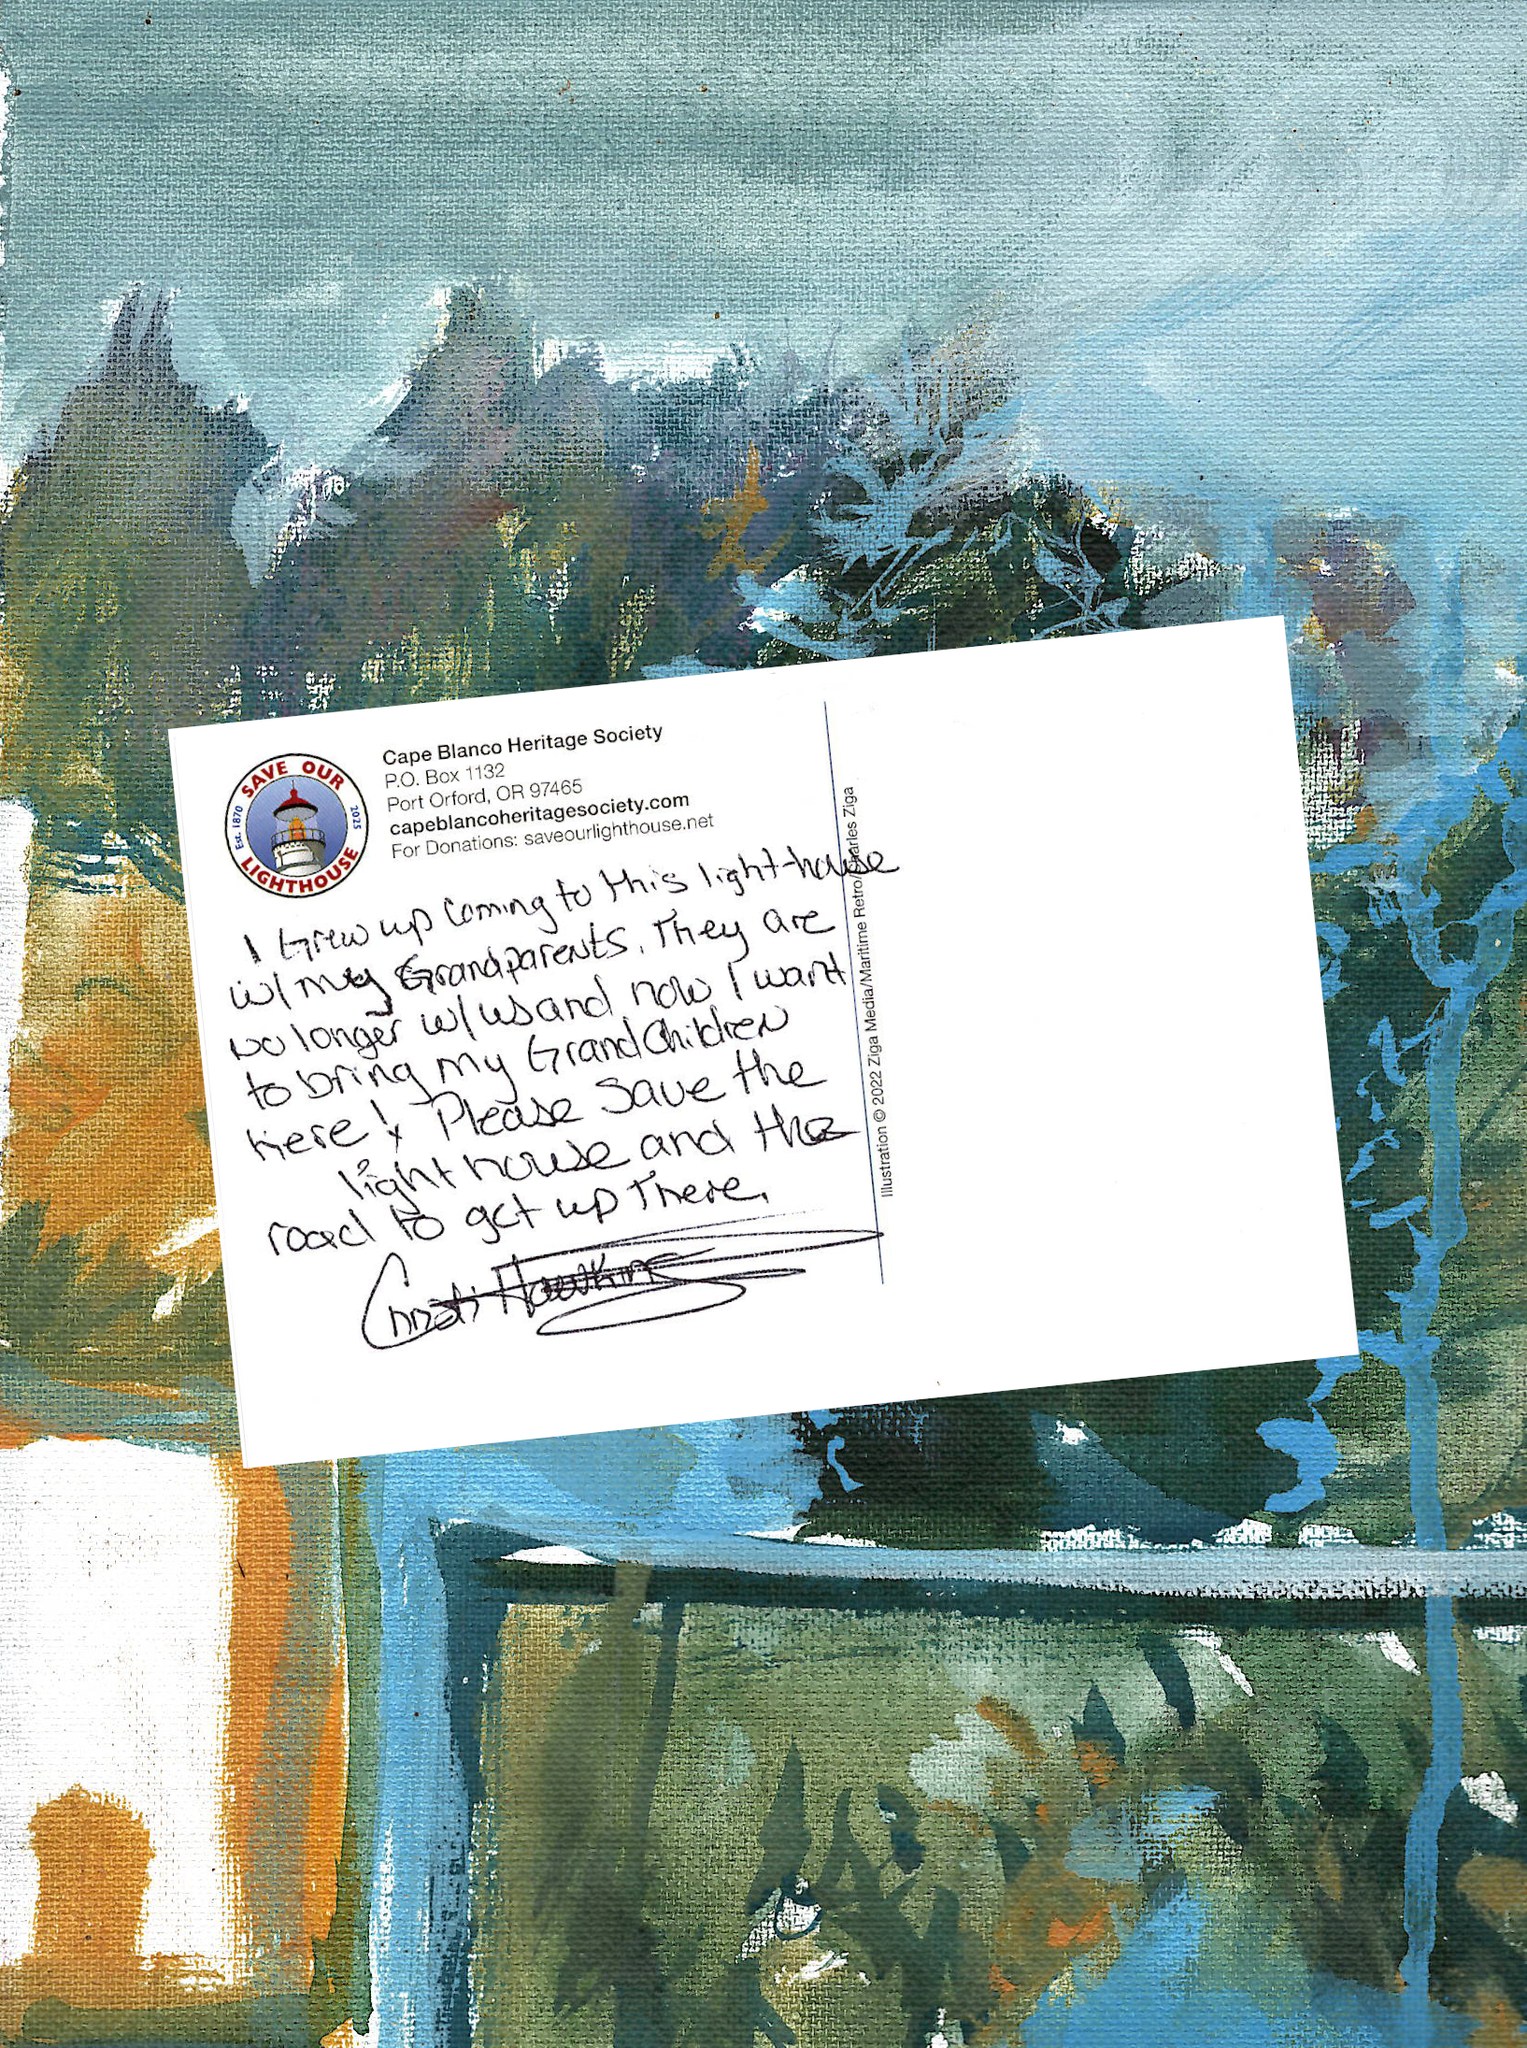 SAVE OUR
LIGHTHOUSE
Est. 1870
2025
Cape Blanco Heritage Society
P.O. Box 1132
Port Orford, OR 97465
capeblancoheritagesociety.com
For Donations: saveourlighthouse.net
I Grew up coming to this light-house
w/ my Grandparents. They are
no longer w/ us and now I want
to bring my GrandChildren
here! Please save the
light house and the
road to get up There.
Christi Hawkins
Illustration © 2022 Ziga Media/Maritime Retro/Charles Ziga